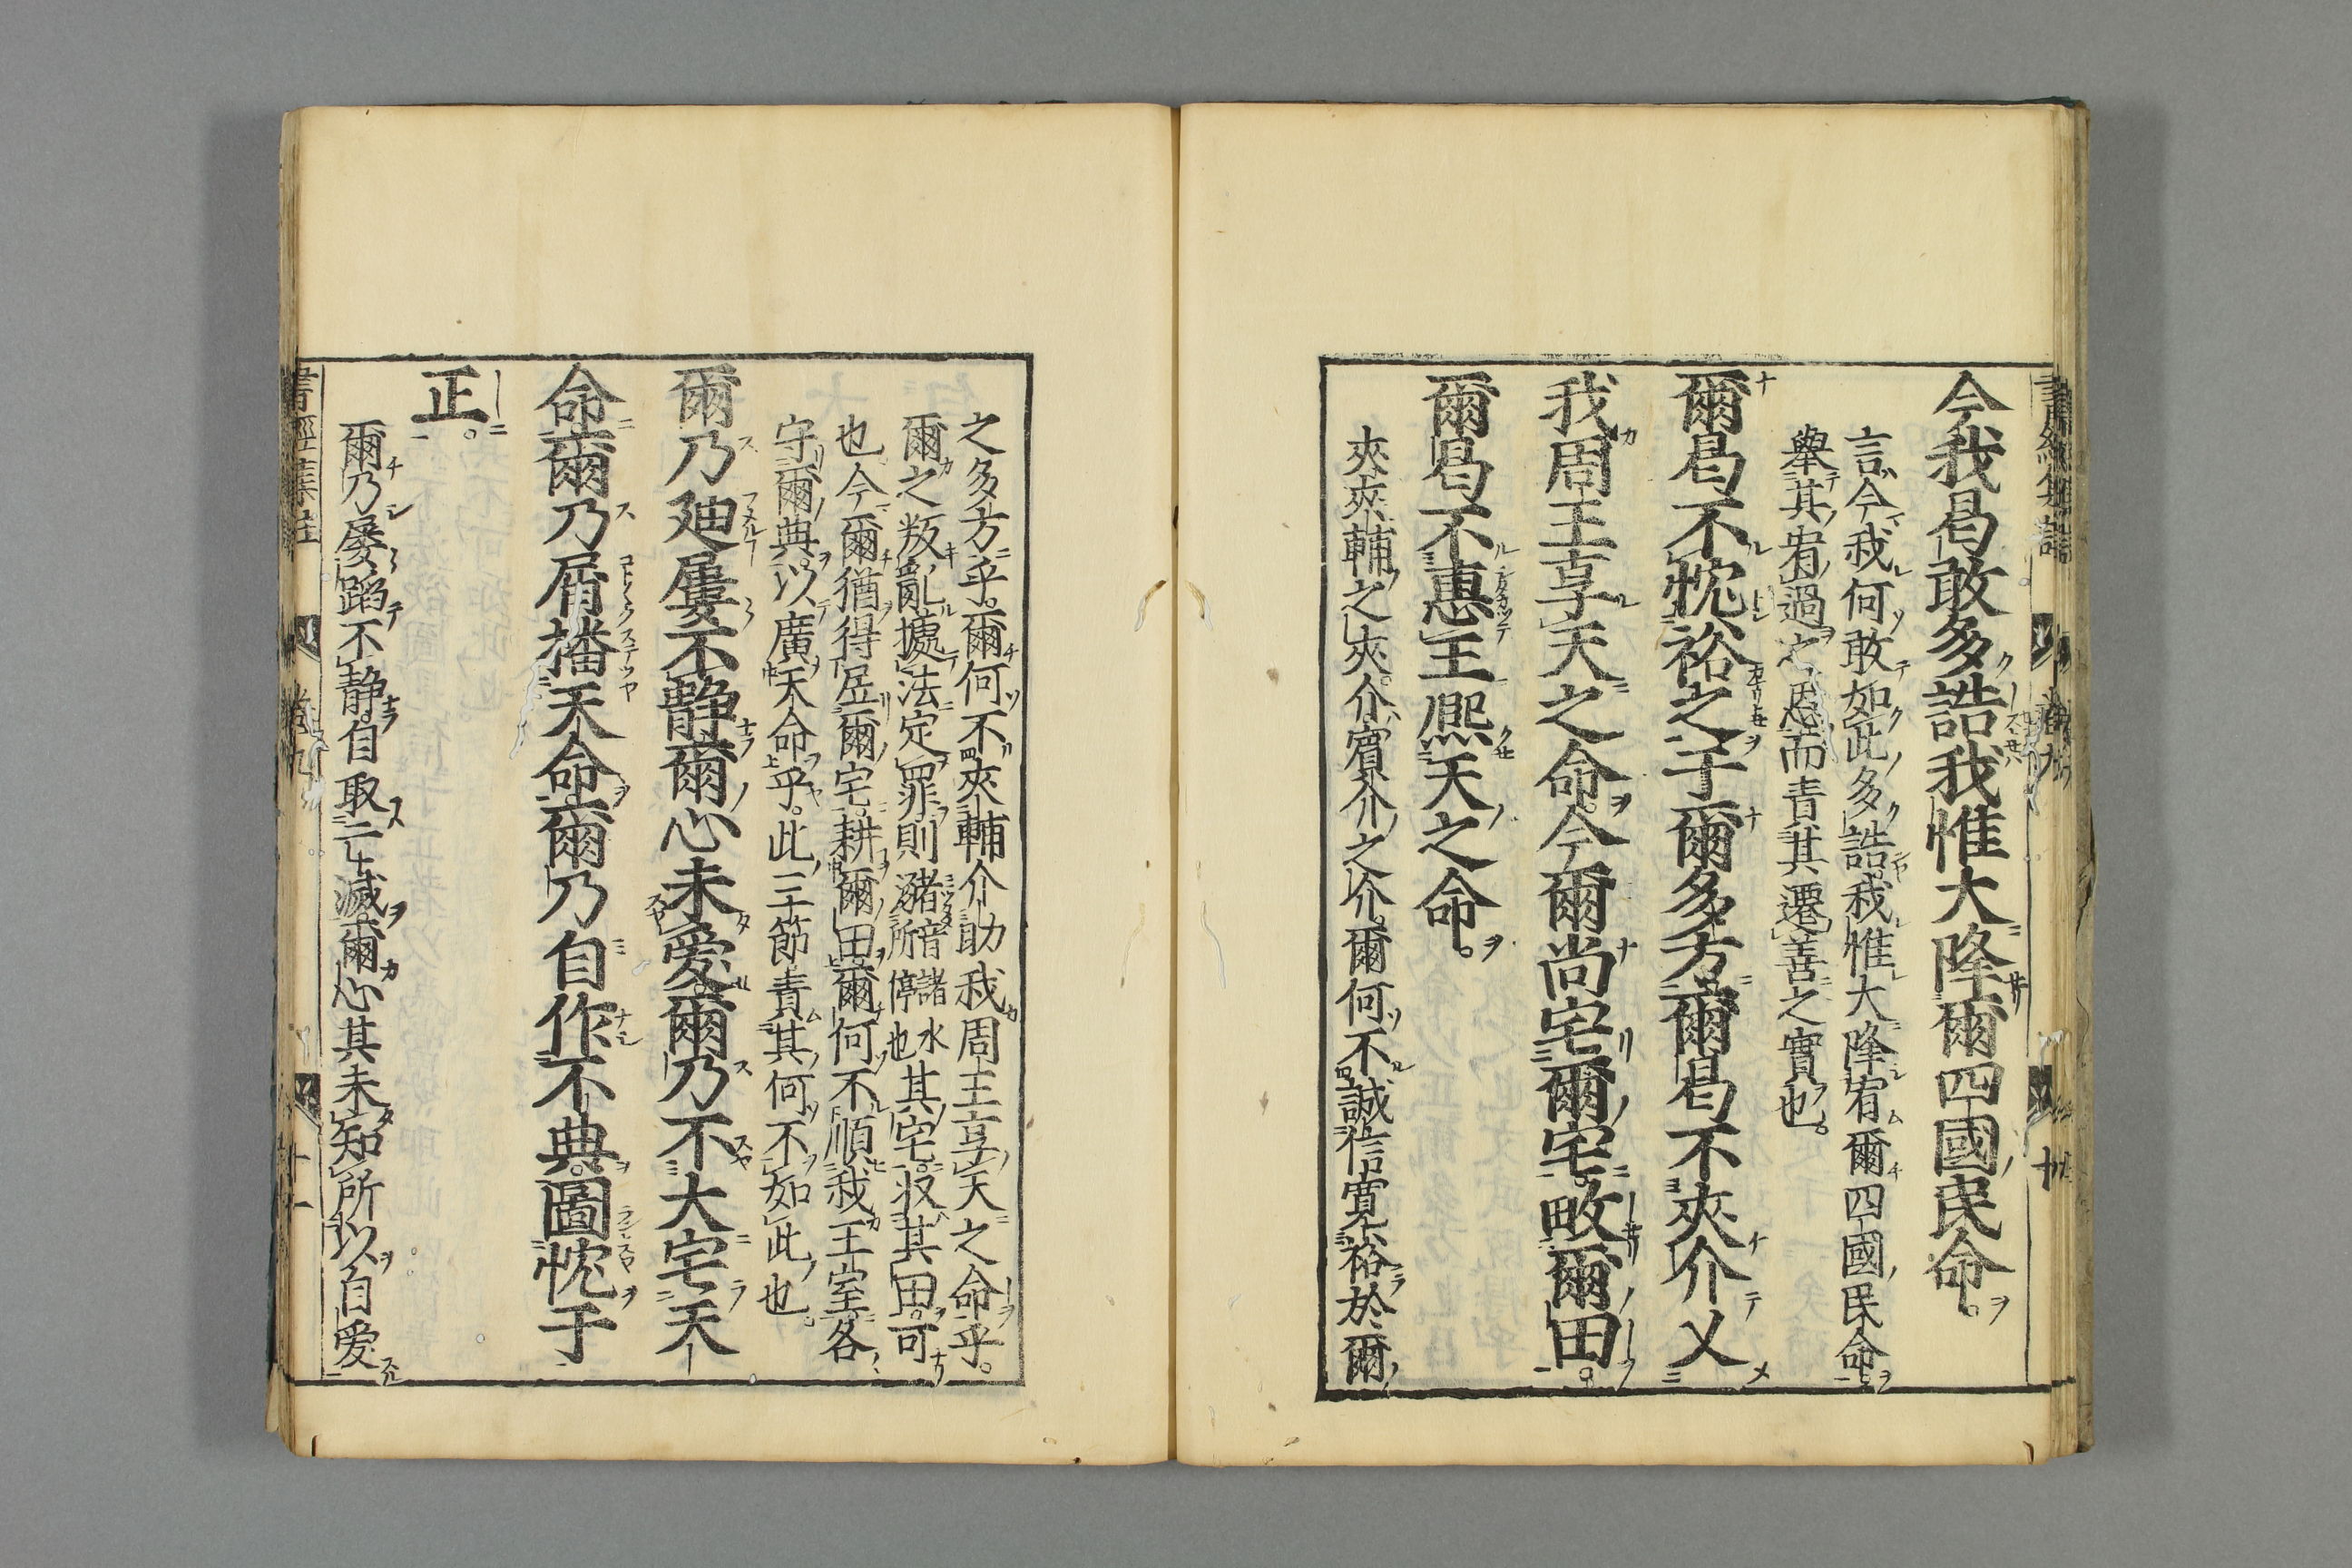 今我曷敢多誥我惟大降爾四國民命。
言今我何敢如此多誥我惟大降宥爾四國民命
舉其宥過之恩而責其遷善之實也。
爾曷不忱裕之于爾多方爾曷不夾介乂
我周王享天之命今爾尚宅爾宅畋爾田。
爾曷不惠王熙天之命。
夾夾輔之夾。介賓介之介。爾何不誠信寛裕於爾
之多方乎。爾何不夾輔介助我周王享天之命乎。
爾之叛亂據法定罪則瀦音諸水所停也其宅。收其田。可
也今爾猶得居爾宅。耕爾田爾何不順我王室各
守爾典。以廣天命乎。此三節責其何不如此也。
爾乃迪屢不靜爾心未愛。爾乃不大宅天
命爾乃屑播天命。爾乃自作不典。圖忱于
正。
爾乃屡蹈不靜。自取亡滅。爾心其未知所以自愛
書經集註 卷九 十一